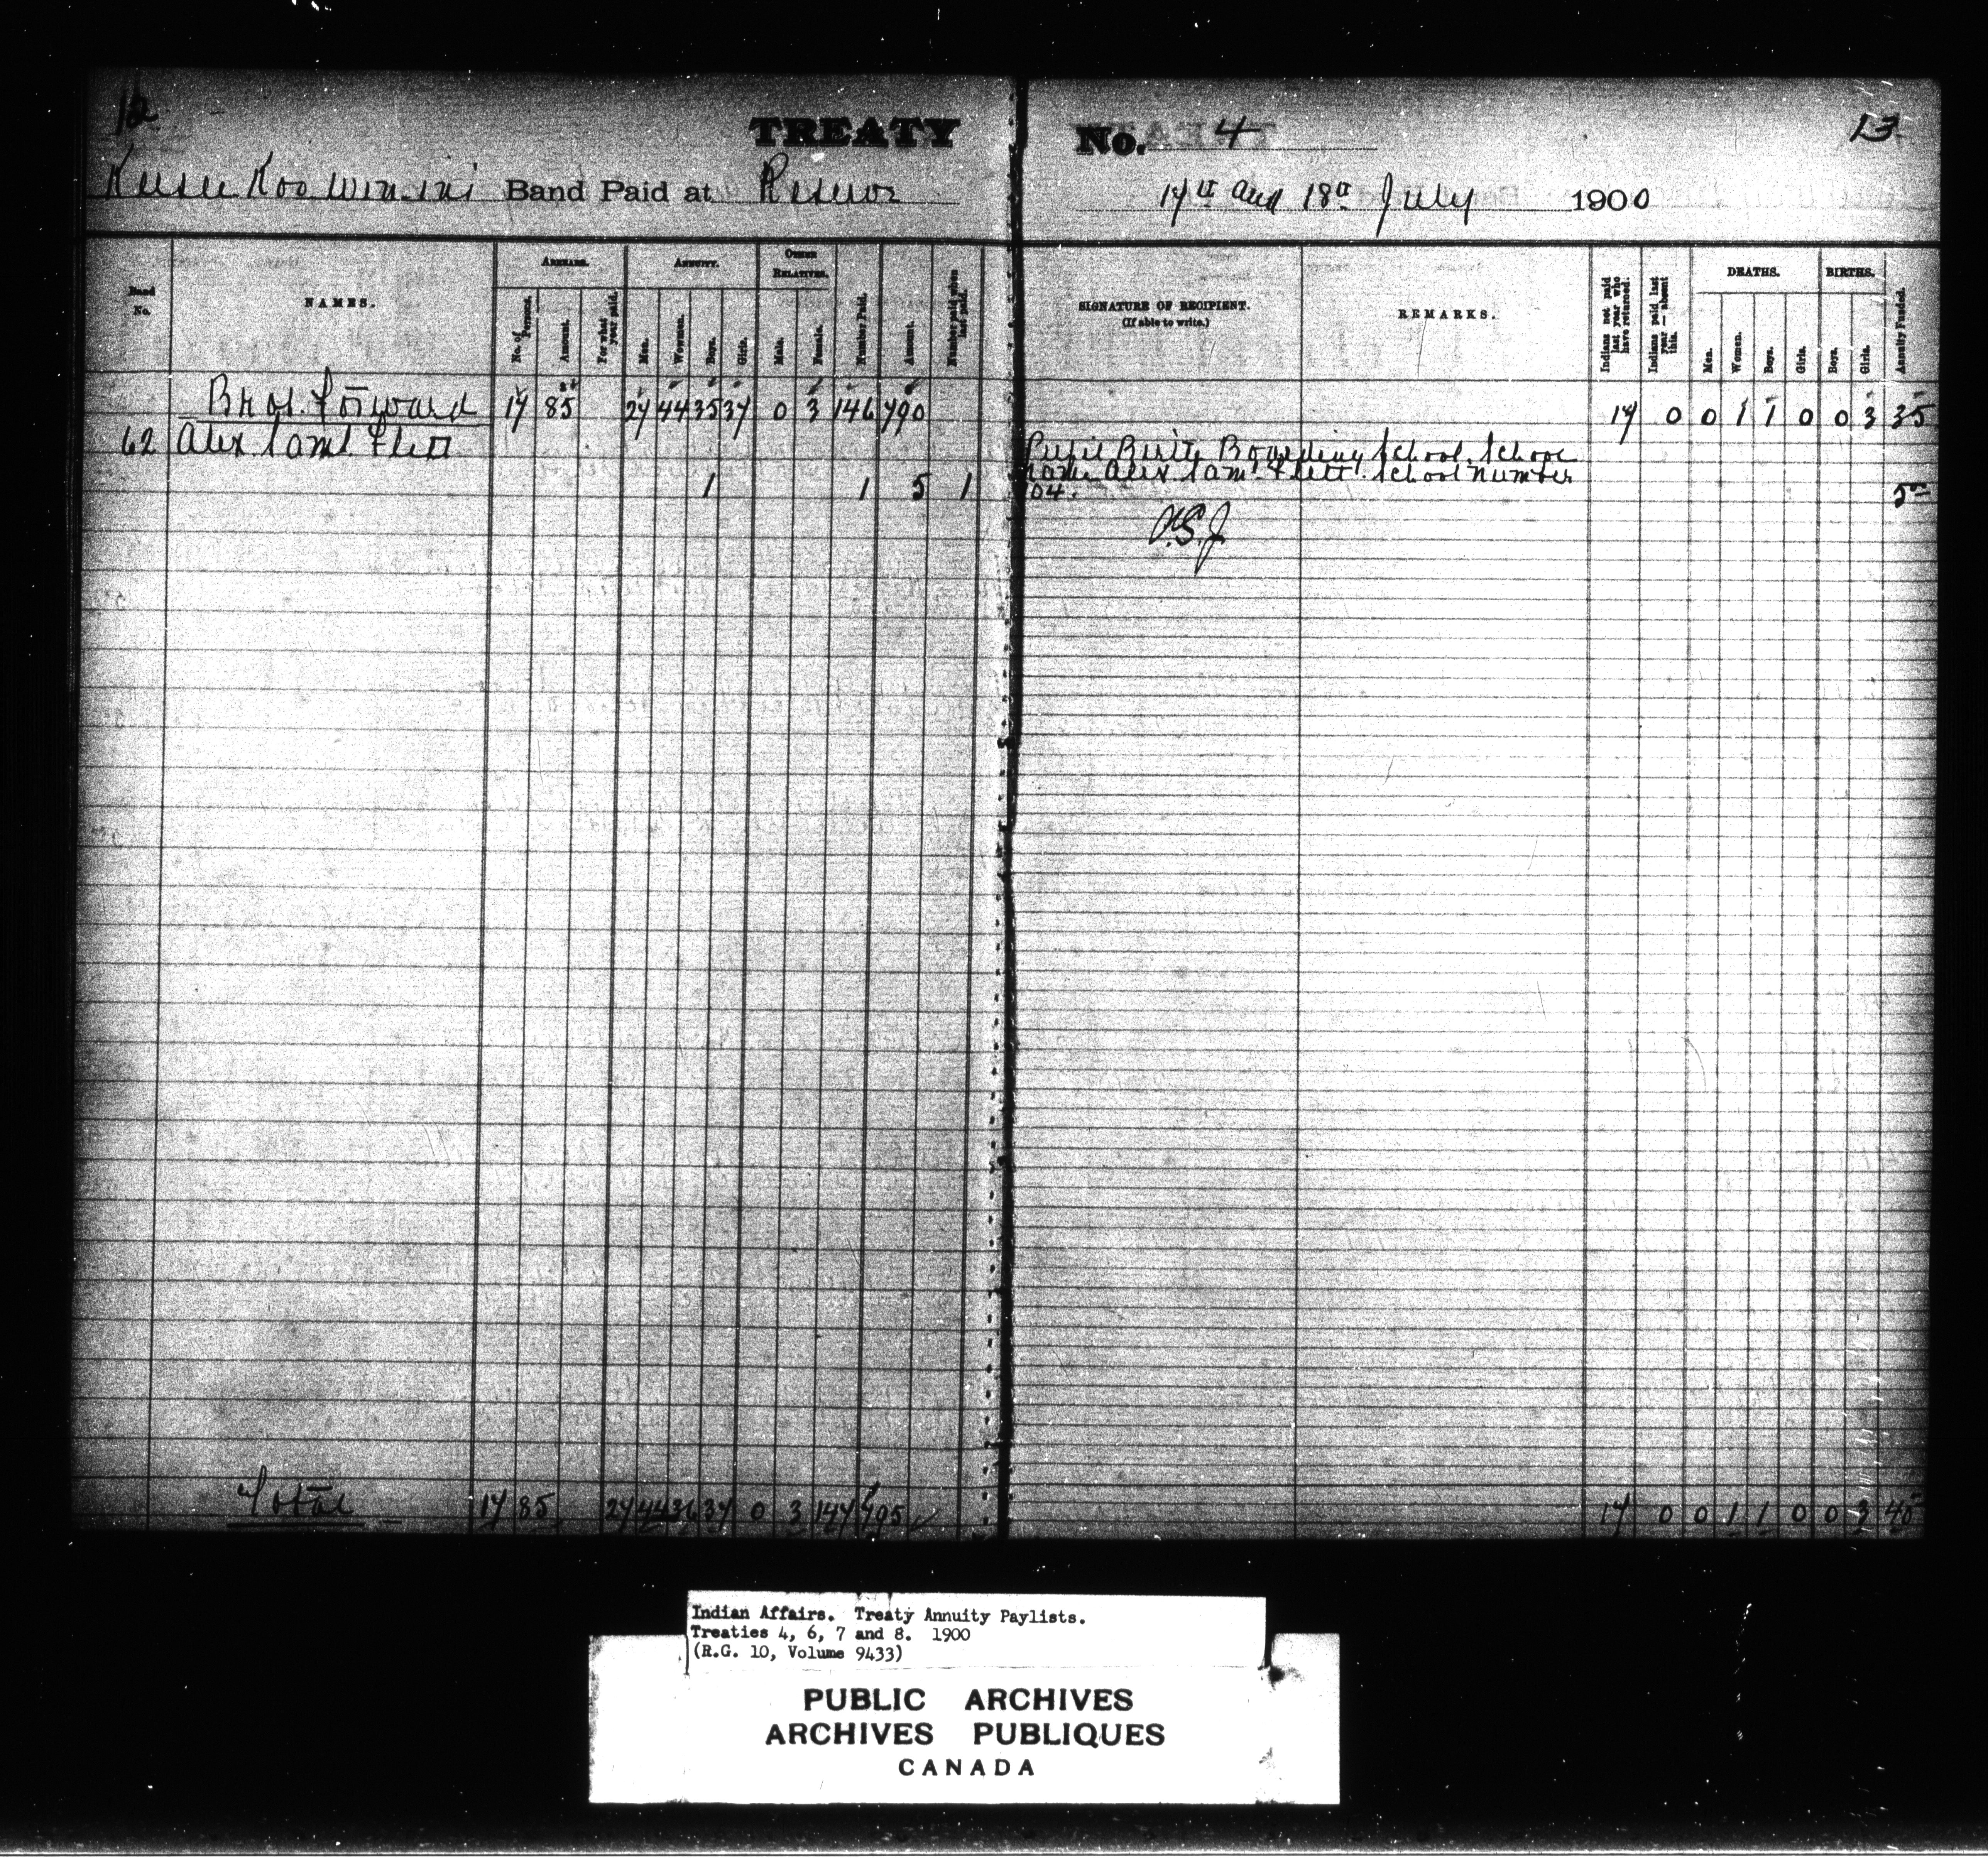 12
TREATY No. 4
13
Keesee Koo wenin's Band Paid at Reserve
17th and 18th July 1900
Band No.
NAMES.
ARREARS.
No. of Persons.
Amount.
For what year paid.
ANNUITY.
Men.
Women.
Boys.
Girls.
OTHER RELATIVES.
Male.
Female.
Number Paid.
Amount.
Number paid when last paid.
SIGNATURE OF RECIPIENT.
(If able to write.)
REMARKS.
Indians not paid last year who have returned.
Indians paid last year — absent this.
DEATHS.
Men.
Women.
Boys.
Girls.
BIRTHS.
Boys.
Girls.
Annuity Funded.
Brot. Forward 17 85 27 44 35 37 0 3 146 790 17 0 0 1 1 0 0 3 35
62 Alex. Saml. Flett
Pupil Birtle Boarding School. School
name Alex. Sam. Flett. School number
1 1 5 1 104. 5
Total 17 85 27 44 36 37 0 3 147 795 17 0 0 1 1 0 0 3 40
Indian Affairs. Treaty Annuity Paylists.
Treaties 4, 6, 7 and 8. 1900
(R.G. 10, Volume 9433)
PUBLIC ARCHIVES
ARCHIVES PUBLIQUES
CANADA